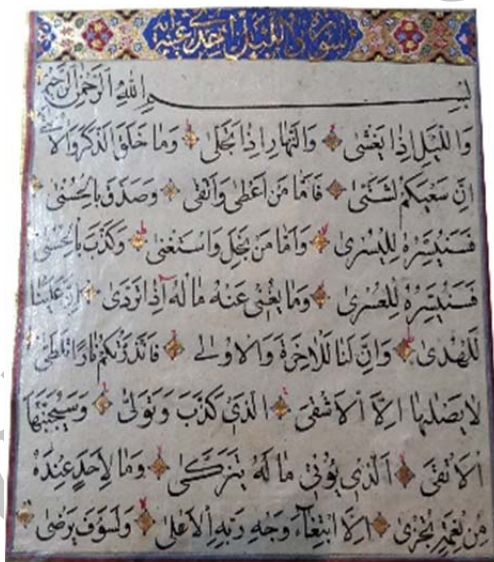 سورة والليل احدى عشرين
بسم الله الرحمن الرحيم
وَاللَّيْلِ إِذَا يَغْشَى وَالنَّهَارِ إِذَا تَجَلَّى وَمَا خَلَقَ الذَّكَرَ وَالْأُنْثَى
إِنَّ سَعْيَكُمْ لَشَتَّى فَأَمَّا مَنْ أَعْطَى وَاتَّقَى وَصَدَّقَ بِالْحُسْنَى
فَسَنُيَسِّرُهُ لِلْيُسْرَى وَأَمَّا مَنْ بَخِلَ وَاسْتَغْنَى وَكَذَّبَ بِالْحُسْنَى
فَسَنُيَسِّرُهُ لِلْعُسْرَى وَمَا يُغْنِي عَنْهُ مَالُهُ إِذَا تَرَدَّى إِنَّ عَلَيْنَا
لَلْهُدَى وَإِنَّ لَنَا لَلْآخِرَةَ وَالْأُولَى فَأَنْذَرْتُكُمْ نَارًا تَلَظَّى
لَا يَصْلَاهَا إِلَّا الْأَشْقَى الَّذِي كَذَّبَ وَتَوَلَّى وَسَيُجَنَّبُهَا
الْأَتْقَى الَّذِي يُؤْتِي مَالَهُ يَتَزَكَّى وَمَا لِأَحَدٍ عِنْدَهُ
مِنْ نِعْمَةٍ تُجْزَى إِلَّا ابْتِغَاءَ وَجْهِ رَبِّهِ الْأَعْلَى وَلَسَوْفَ يَرْضَى